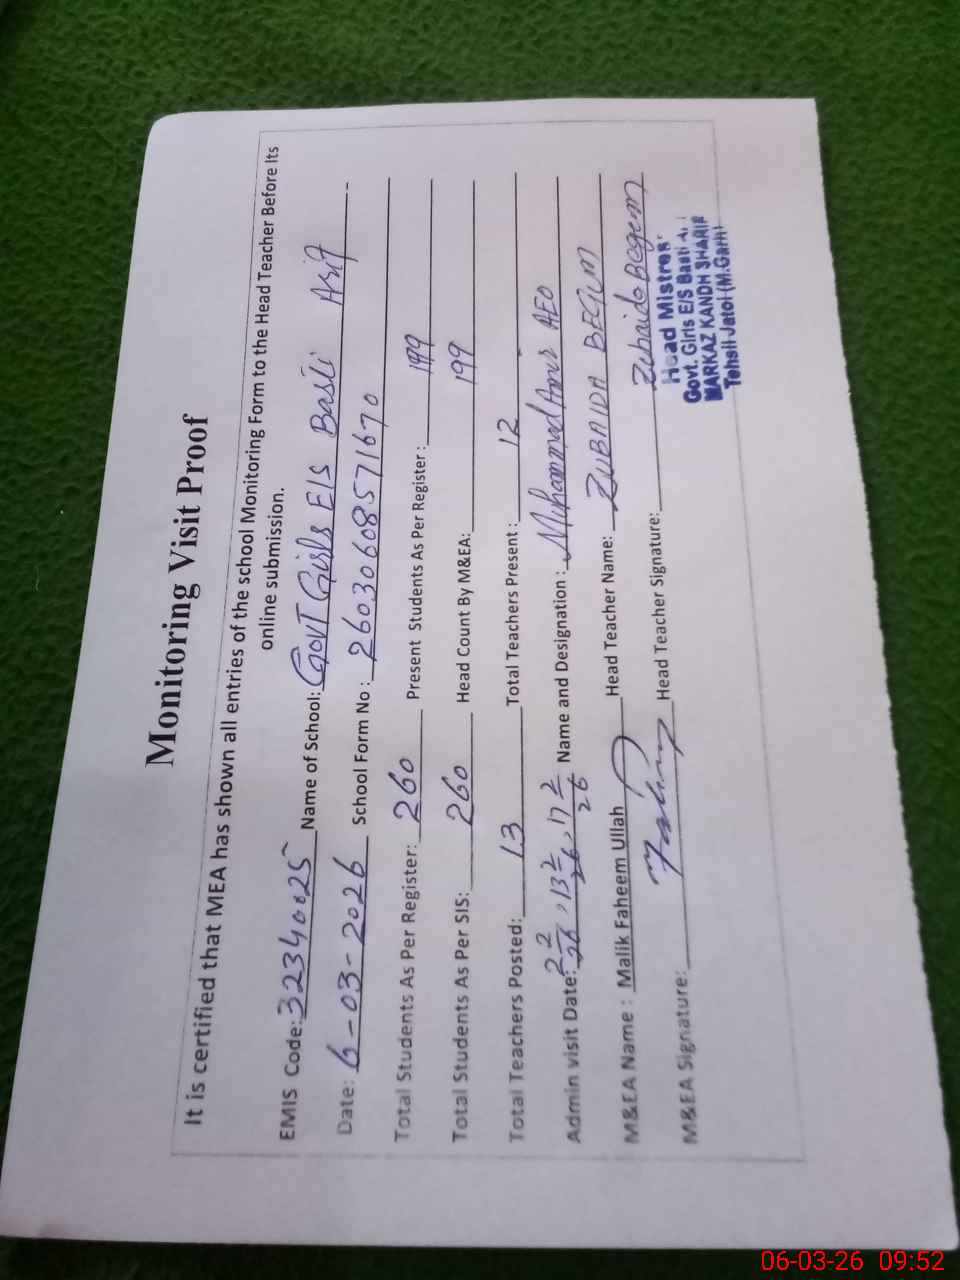 Monitoring Visit Proof
It is certified that MEA has shown all entries of the school Monitoring Form to the Head Teacher Before Its
online submission.
EMIS Code: 32340025 Name of School: Govt Girls E/S Basti Asif
Date: 6-03-2026 School Form No : 26030608571670
Total Students As Per Register: 260 Present Students As Per Register : 199
Total Students As Per SIS: 260 Head Count By M&EA: 199
Total Teachers Posted: 13 Total Teachers Present : 12
Admin visit Date: 13 2/26, 17 2/26 Name and Designation : Muhammad Amir AEO
M&EA Name : Malik Faheem Ullah Head Teacher Name: ZUBAIDA BEGUM
M&EA Signature: Head Teacher Signature: Zubaida Begum
Head Mistres
Govt. Girls E/S Basti A
MARKAZ KANDH SHARIF
Tehsil Jatoi (M.Garh)
06-03-26 09:52